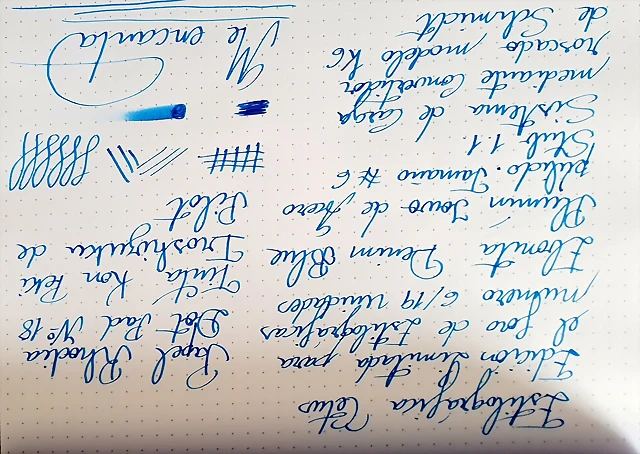 Estilográfica
Edición Limitada para
el foro de Estilográficas
número 6/14 unidades
Ebonita Denim Blue
Plumín Jowo de Acero
pulido. Tamaño #6
Stub 1.1
Sistema de Carga
mediante Convertidor
roscado modelo K6
de Schmidt
Papel Rhodia
Dot Pad Nº 18
Tinta Kon Peki
Iroshizuku de
Pilot
Me encanta